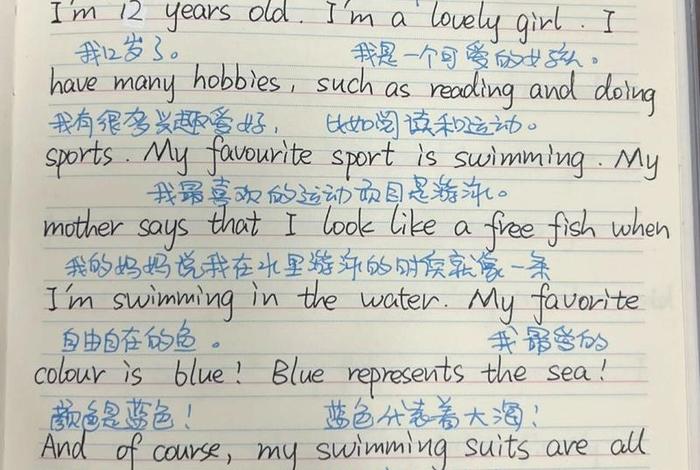 I'm 12 years old. I'm a lovely girl. I
我12岁了。 我是一个可爱的女孩。
have many hobbies, such as reading and doing
我有很多兴趣爱好, 比如阅读和运动。
sports. My favourite sport is swimming. My
我最喜欢的运动项目是游泳。
mother says that I look like a free fish when
我的妈妈说我在水里游泳的时候就像一条
I'm swimming in the water. My favorite
自由自在的鱼。 我最爱的
colour is blue! Blue represents the sea!
颜色是蓝色! 蓝色代表着大海!
And of course, my swimming suits are all